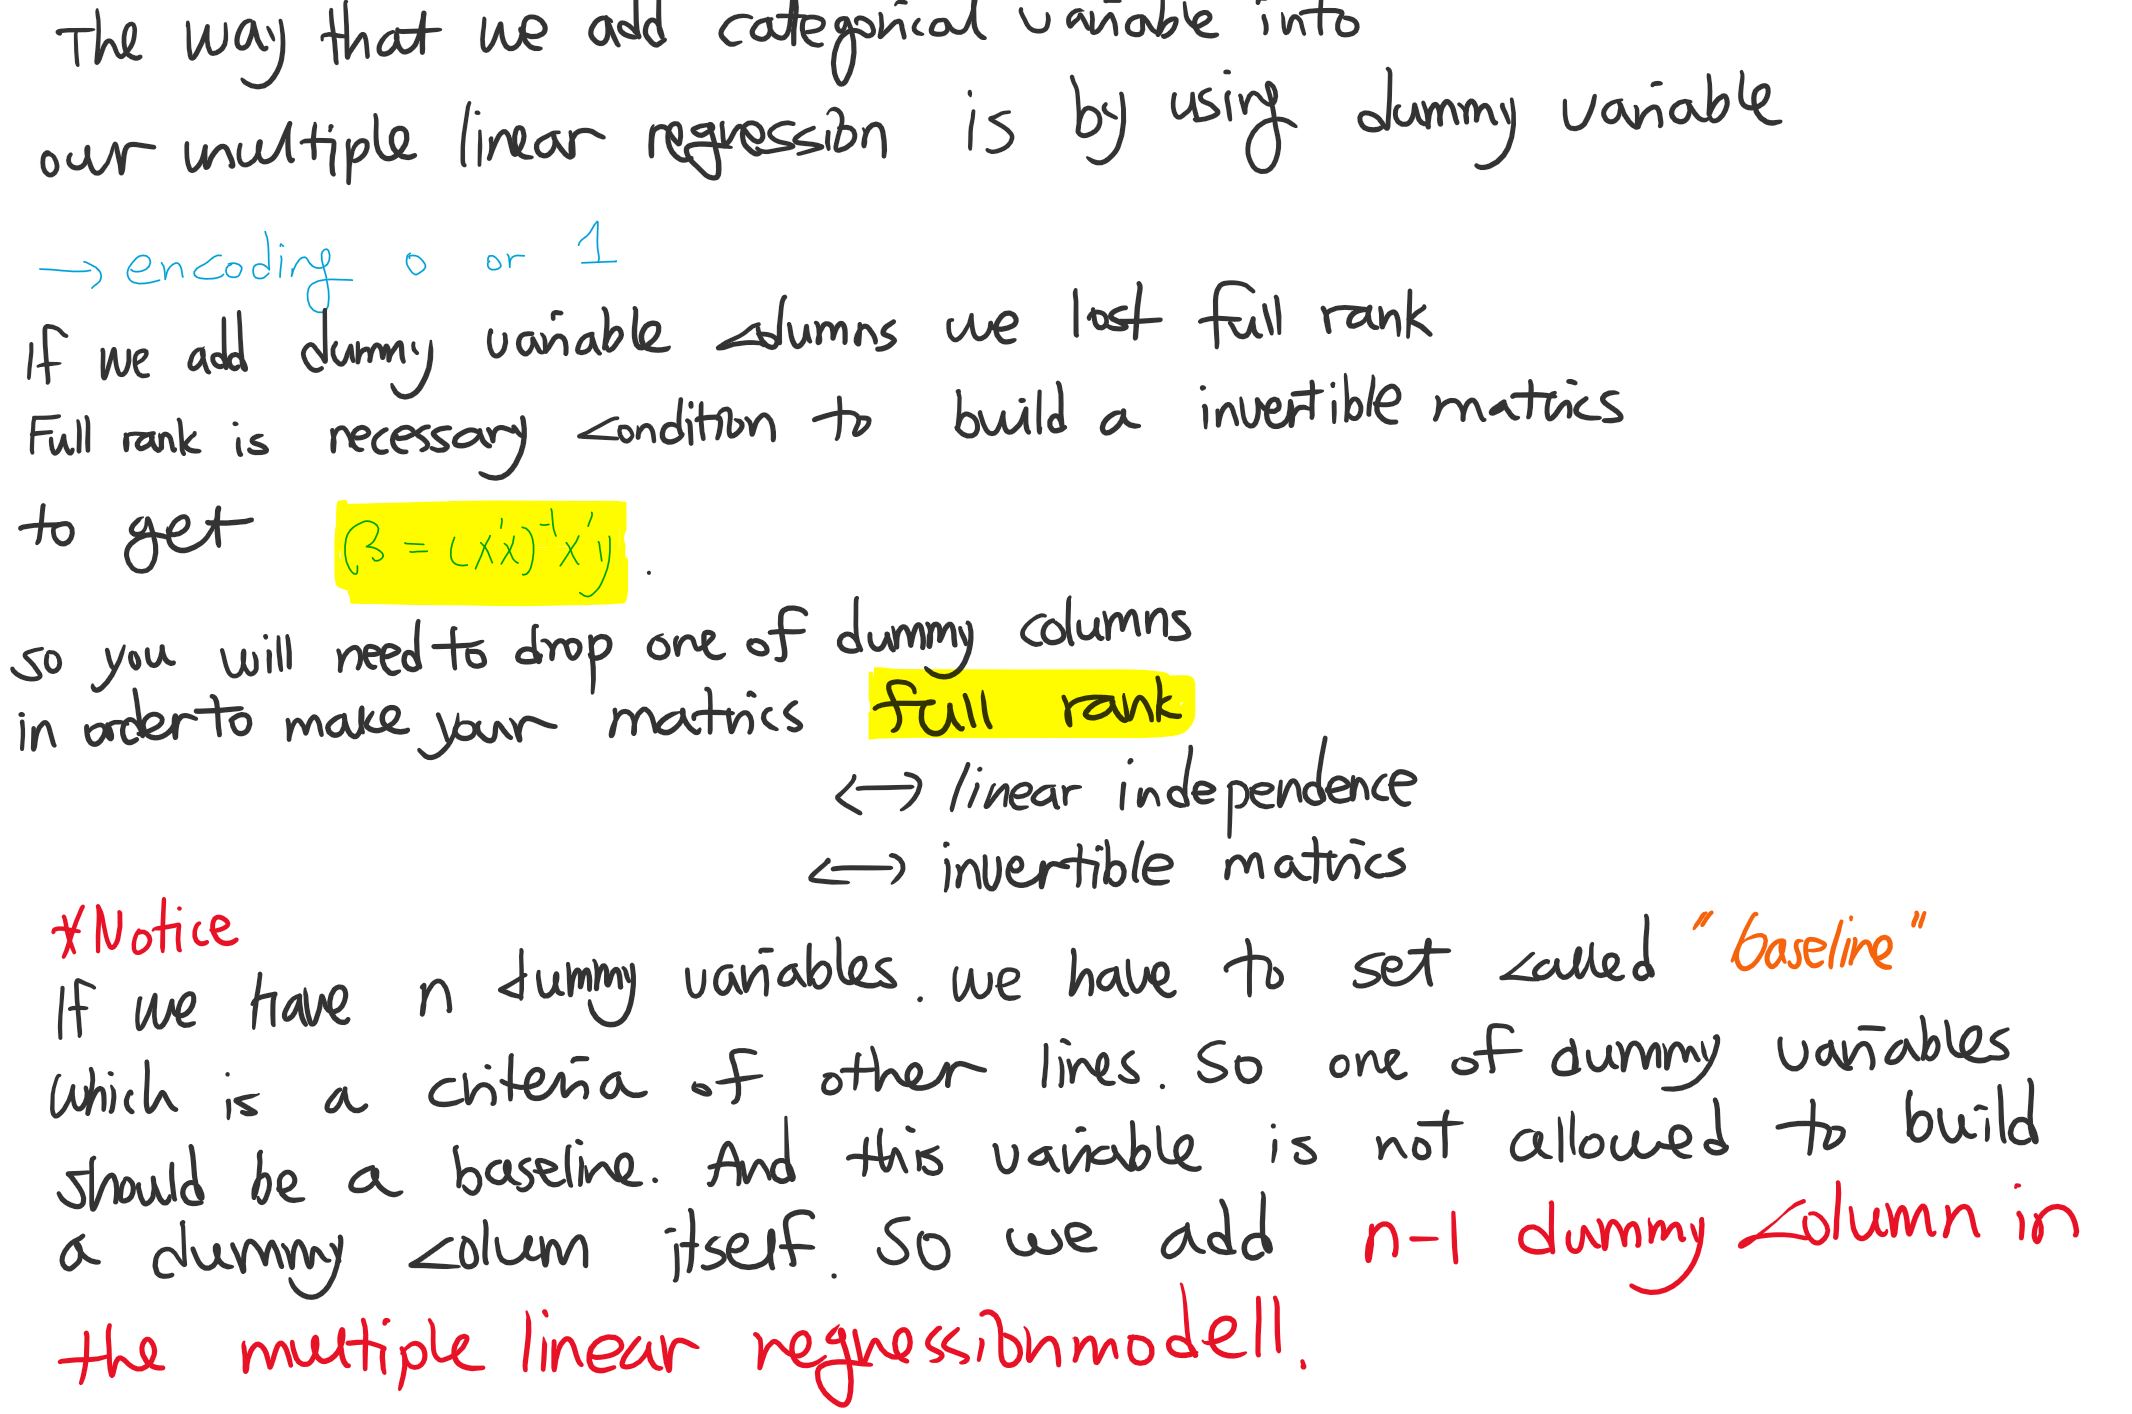 The way that we add categorical variable into
our multiple linear regression is by using dummy variable
→ encoding 0 or 1
If we add dummy variable columns we lost full rank
Full rank is necessary condition to build a invertible matrics
to get β = (X'X)⁻¹X'y .
so you will need to drop one of dummy columns
in order to make your matrics full rank
↔ linear independence
↔ invertible matrics
*Notice
If we have n dummy variables. we have to set called "baseline"
which is a criteria of other lines. So one of dummy variables
should be a baseline. And this variable is not allowed to build
a dummy colum itself. So we add n-1 dummy column in
the multiple linear regressionmodell.